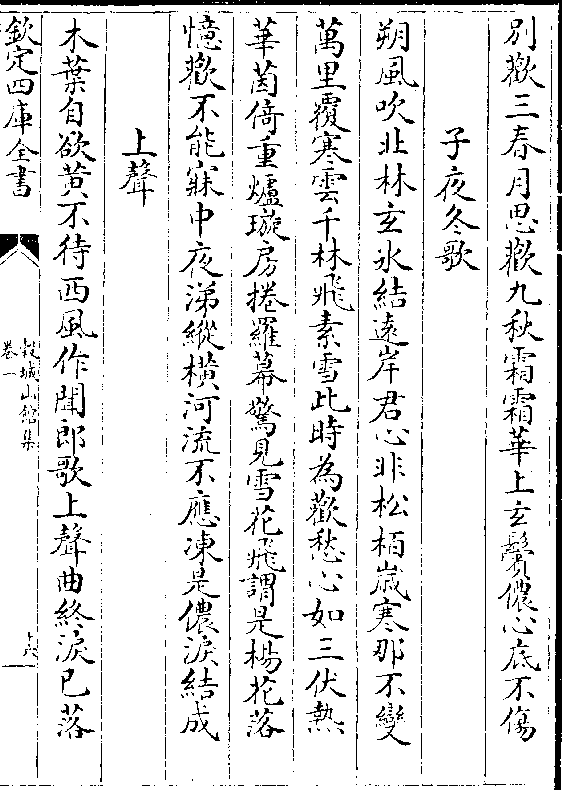 別歡三春月思歡九秋霜霜華上玄鬢儂心底不傷
子夜冬歌
朔風吹北林玄氷結遠岸君心非松栢嵗寒那不變
萬里覆寒雲千林飛素雪此時為歡愁心如三伏熱
華茵倚重爐璇房捲羅幕驚見雪花飛謂是楊花落
憶歡不能寐中夜涕縱橫河流不應凍是儂淚結成
上聲
木葉自欲黄不待西風作聞郎歌上聲曲終淚已落
欽定四庫全書
榖城山館集
卷一
十六